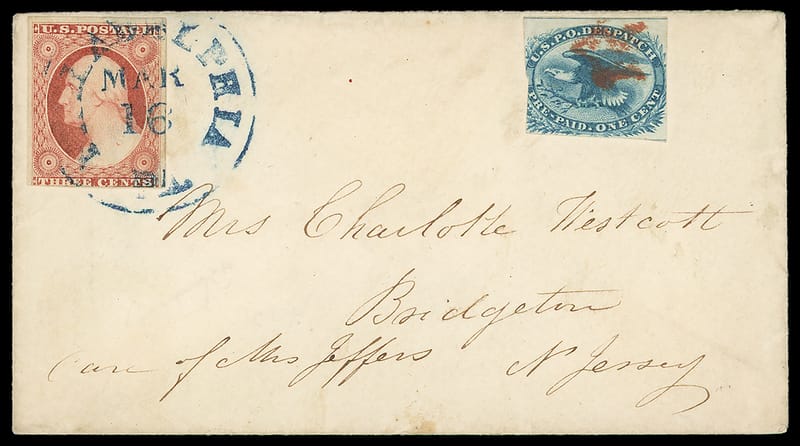 U.S. POSTAGE
THREE CENTS
PHILADELPHIA
MAR
16
Pa.
U.S.P.O. DESPATCH
PRE-PAID. ONE CENT
Mrs Charlotte Westcott
Bridgeton
Care of Mrs Jeffers N Jersey